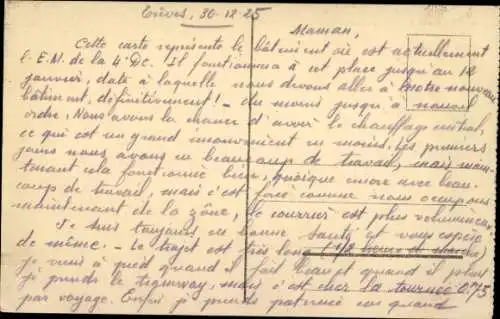 Trèves, 30-12-25
Maman,
Cette carte représente le bâtiment où est actuellement
l'E.M. de la 4e DC. Il fonctionnera à cet place jusqu'au 12
janvier, date à laquelle nous devons aller à notre nouveau
bâtiment, définitivement! - du moins jusqu'à nouvel
ordre. Nous avons la chance d'avoir le chauffage central,
ce qui est un grand inconvénient en moins. Les premiers
jours nous avons eu beaucoup de travail, mais main-
tenant cela fonctionne bien, quoique encore avec beau-
coup de travail, mais c'est forcé comme nous occupons
maintenant de la zône, le courrier est plus
Je suis toujours en bonne santé et vous espère
de même. - Le trajet est très long (1/2 heure de marche)
je viens à pied quand il fait beau et quand il pleut
je prends le tramway, mais c'est cher la tournée 0.75
par voyage. Enfin je prends patience car quand